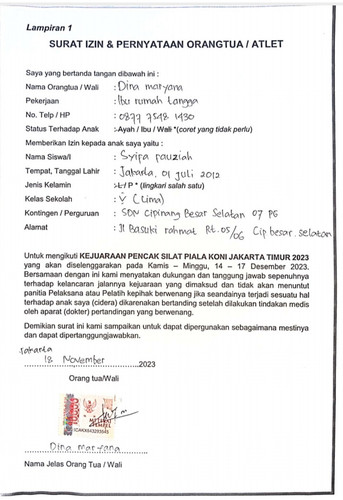 Lampiran 1
SURAT IZIN & PERNYATAAN ORANGTUA / ATLET
Saya yang bertanda tangan dibawah ini :
Nama Orangtua / Wali : Dina maryana
Pekerjaan : Ibu rumah tangga
No. Telp / HP : 0877 7548 1430
Status Terhadap Anak : Ayah / Ibu / Wali *(coret yang tidak perlu)
Memberikan Izin kepada anak saya yaitu :
Nama Siswa/I : Syifa fauziah
Tempat, Tanggal Lahir : Jakarta, 01 Juli 2012
Jenis Kelamin : L / P * (lingkari salah satu)
Kelas Sekolah : V (Lima)
Kontingen / Perguruan : SDN Cipinang Besar Selatan 07 PG
Alamat : Jl Basuki rahmat Rt.05/06 Cip besar selatan
Untuk mengikuti KEJUARAAN PENCAK SILAT PIALA KONI JAKARTA TIMUR 2023
yang akan diselenggarakan pada Kamis – Minggu, 14 – 17 Desember 2023.
Bersamaan dengan ini kami menyatakan dukungan dan tanggung jawab sepenuhnya
terhadap kelancaran jalannya kejuaraan yang dimaksud dan tidak akan menuntut
panitia Pelaksana atau Pelatih kepihak berwenang jika seandainya terjadi sesuatu hal
terhadap anak saya (cidera) dikarenakan bertanding setelah dilakukan tindakan medis
oleh aparat (dokter) pertandingan yang berwenang.
Demikian surat ini kami sampaikan untuk dapat dipergunakan sebagaimana mestinya
dan dapat dipertanggungjawabkan.
Jakarta
18 November 2023
Orang tua/Wali
10000
METERAI
TEMPEL
Dina maryana
Nama Jelas Orang Tua / Wali